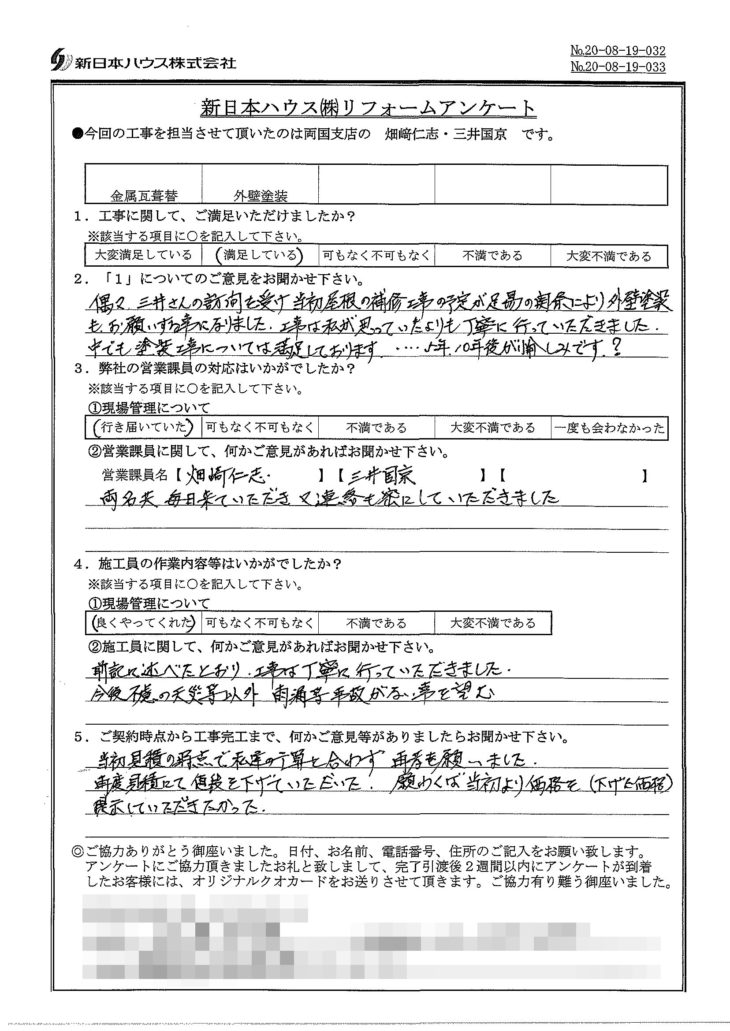 新日本ハウス株式会社
No.20-08-19-032
No.20-08-19-033
新日本ハウス㈱リフォームアンケート
●今回の工事を担当させて頂いたのは両国支店の　畑﨑仁志・三井国京　です。
金属瓦葺替　外壁塗装
１．工事に関して、ご満足いただけましたか？
※該当する項目に○を記入して下さい。
大変満足している　(満足している)　可もなく不可もなく　不満である　大変不満である
２．「１」についてのご意見をお聞かせ下さい。
偶々、三井さんの訪問を受け当初屋根の補修工事の予定が足場の関係により外壁塗装
もお願いする事になりました。工事は私が思っていたよりも丁寧に行っていただきました。
中でも塗装工事については満足しております。……5年、10年後が愉しみです？
３．弊社の営業課員の対応はいかがでしたか？
※該当する項目に○を記入して下さい。
①現場管理について
(行き届いていた)　可もなく不可もなく　不満である　大変不満である　一度も会わなかった
②営業課員に関して、何かご意見があればお聞かせ下さい。
営業課員名【畑﨑仁志・　】【三井国京　】【　】
両名共、毎日来ていただき又連絡も密にしていただきました
４．施工員の作業内容等はいかがでしたか？
※該当する項目に○を記入して下さい。
①現場管理について
(良くやってくれた)　可もなく不可もなく　不満である　大変不満である
②施工員に関して、何かご意見があればお聞かせ下さい。
前記に述べたとおり、工事は丁寧に行っていただきました。
今後不慮の天災等以外 雨漏等事故がない事を望む
５．ご契約時点から工事完工まで、何かご意見等がありましたらお聞かせ下さい。
当初見積の時点で私達の予算と合わず 再考を願いました。
再度見積にて値段を下げていただいた。願わくば当初より価格を(下げた価格)
提示していただきたかった。
◎ご協力ありがとう御座いました。日付、お名前、電話番号、住所のご記入をお願い致します。
アンケートにご協力頂きましたお礼と致しまして、完了引渡後２週間以内にアンケートが到着
したお客様には、オリジナルクオカードをお送りさせて頂きます。ご協力有り難う御座いました。